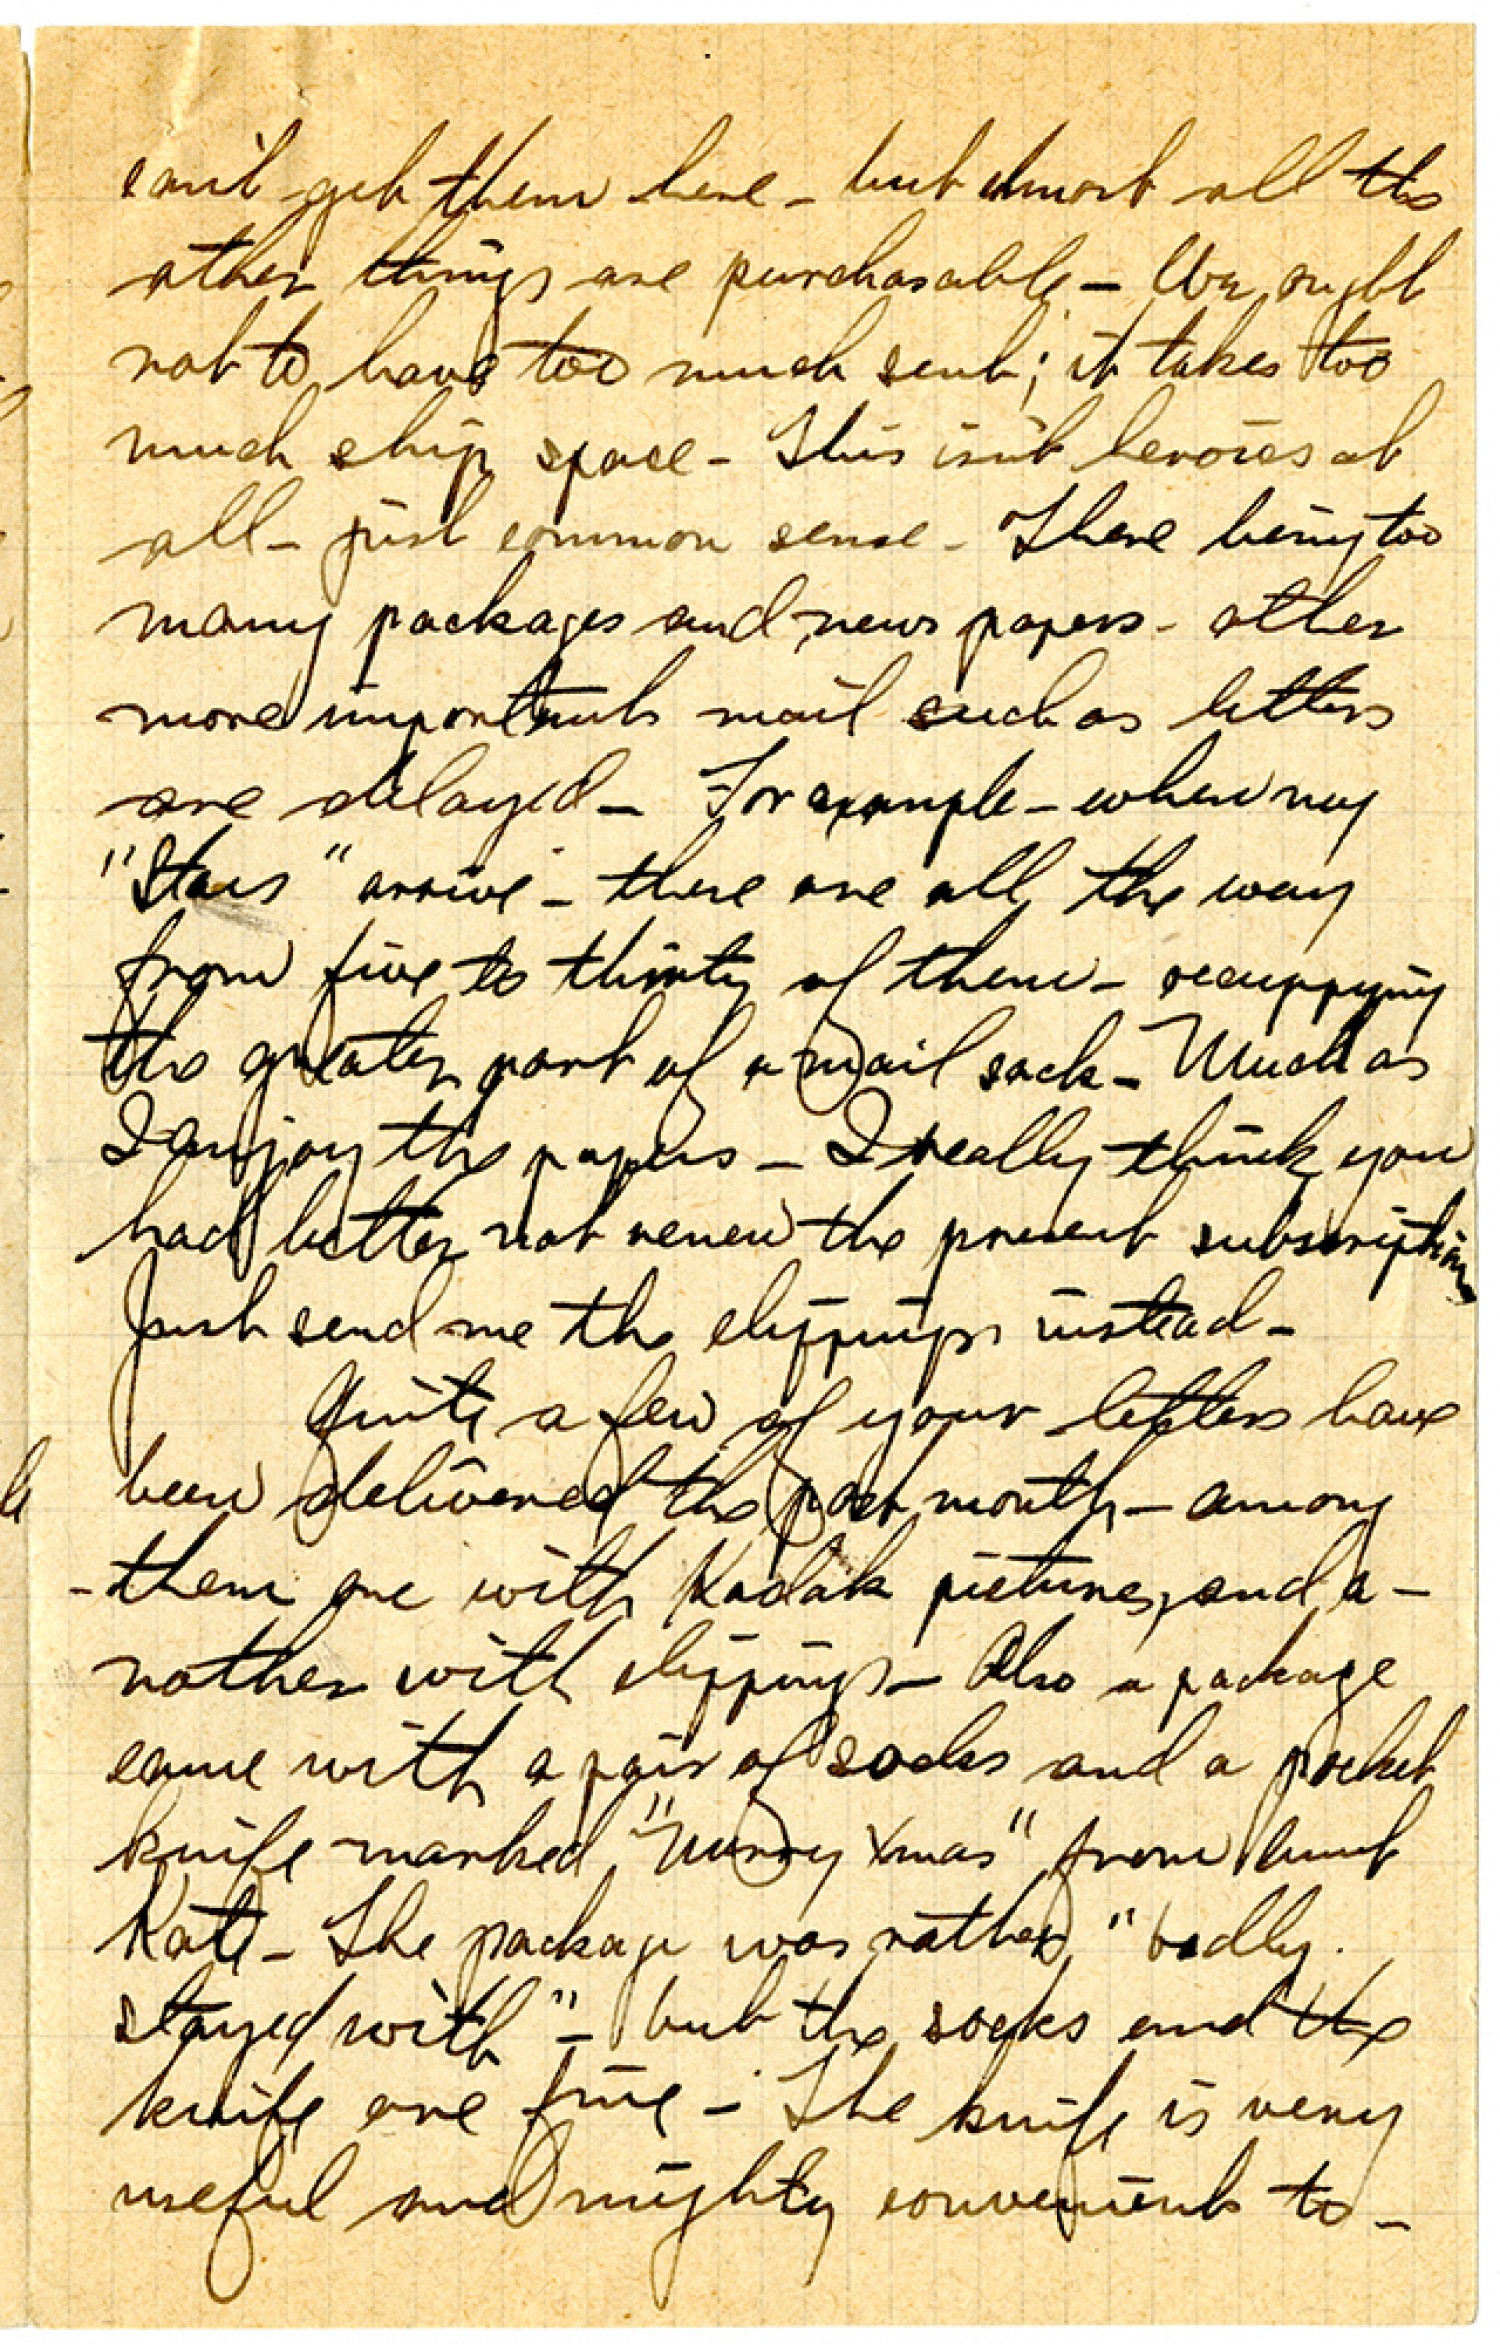 can't get them here - but almost all the
other things are purchasable - We ought
not to have too much sent; it takes too
much ship space - This isn't heroics at
all - just common sense - There being too
many packages and news papers - other
more important mail such as letters
are delayed - For example - when my
"Stars" arrive - there are all the way
from five to thirty of them - occuppying
the greater part of a mail sack - Much as
I enjoy the papers - I really think you
had better not renew the present subscription
Just send me the clippings instead -
Quite a few of your letters have
been delivered the past month - among
- them one with Kodak pictures, and a -
nother with clippings - Also a package
came with a pair of socks and a pocket
knife marked "Merry Xmas" from Aunt
Kate - The package was rather "badly
stayed with" - but the socks and the
knife are fine - The knife is very
useful and mighty convenient to -